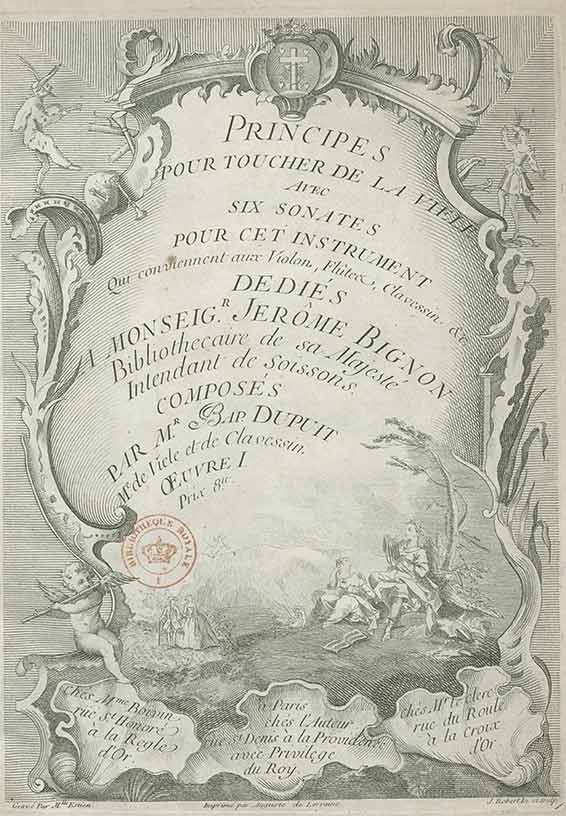 PRINCIPES
POUR TOUCHER DE LA VIELE
AVEC
SIX SONATES
POUR CET INSTRUMENT
Qui conviennent aux Violon, Flûte, Clavessin, &c.
DEDIÉS
A MONSEIG.R JERÔME BIGNON
Bibliothecaire de sa Majesté
Intendant de Soissons.
COMPOSÉS
PAR M.R BAP. DUPUIT
M.e de Viele et de Clavessin.
ŒUVRE I
Prix 8.tt
BIBLIOTHEQUE ROYALE
I
chés M.me Boivin
rue S.t Honoré
à la Regle
d'Or
à Paris
chés L'Auteur
rue S.t Denis à la Providence
avec Privilege
du Roy
chés M.r le Clerc
rue du Roule
à la Croix
d'Or
Gravé Par M.lle Estien
Imprimé par Auguste de Lorraine
J. Robert In. et sculp.